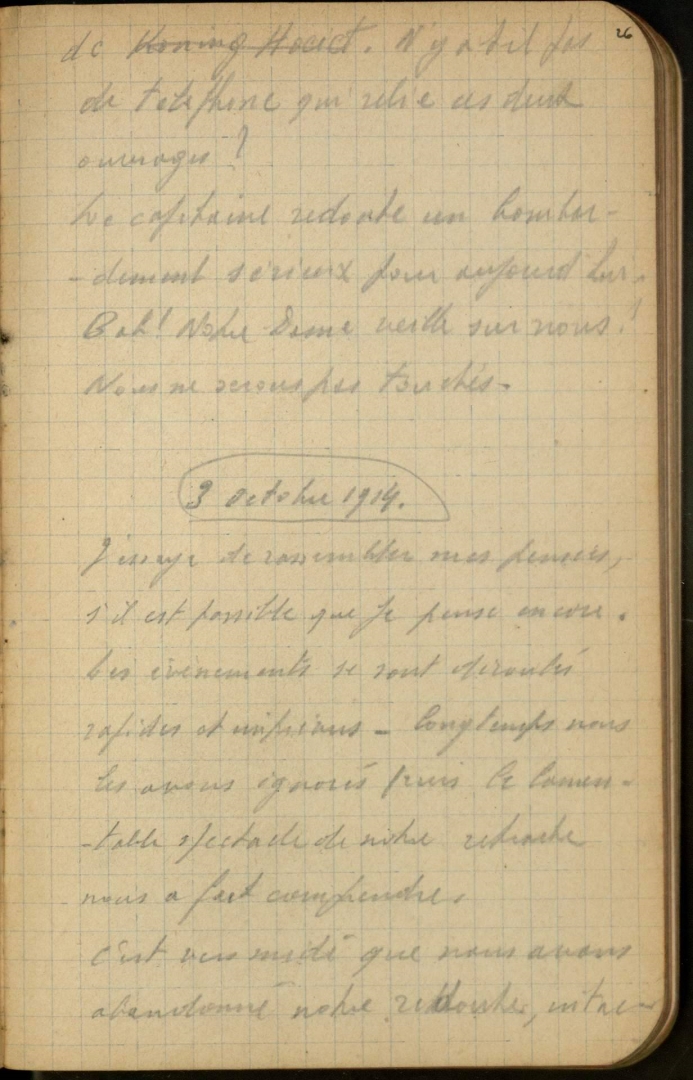 26
de Koning Hoeict. N'y a t il pas
de téléphone qui relie ces deux
ouvrages ?
Le capitaine redoute un bombar-
-dement sérieux pour aujourd'hui.
Bah! Notre Dame veille sur nous!
Nous ne serons pas touchés.
3 octobre 1914.
J'essaye de rassembler mes pensées,
s'il est possible que je pense encore.
Les événements se sont déroulés
rapides et imprévus - longtemps nous
les avons ignorés puis le lamen-
-table spectacle de notre retraite
nous a fait comprendre.
c'est vers midi que nous avons
abandonné notre redoute, intac-